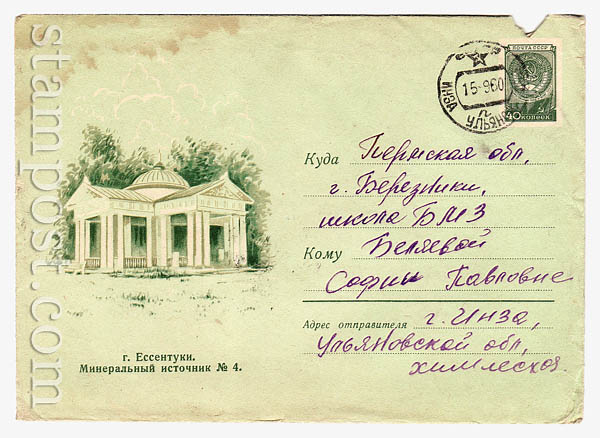 ПОЧТА СССР
40 КОПЕЕК
СССР
ИНЗА
15-960
Куда Пермская обл,
г. Березники,
школа БМЗ
Кому Беляевой
Софии Павловне
Адрес отправителя г. Инза,
Ульяновской обл,
химлесхоз.
г. Ессентуки.
Минеральный источник № 4.
stampost.com